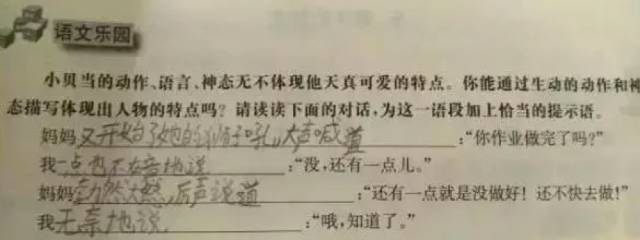 语文乐园
小贝当的动作、语言、神态无不体现他天真可爱的特点。你能通过生动的动作和神
态描写体现出人物的特点吗?请读读下面的对话,为这一语段加上恰当的提示语。
妈妈又开始了她的狮子吼,大声喊道:“你作业做完了吗?”
我一点也不地说:“没,还有一点儿。”
妈妈勃然大怒,厉声说道:“还有一点就是没做好!还不快去做!”
我无奈地说:“哦,知道了。”